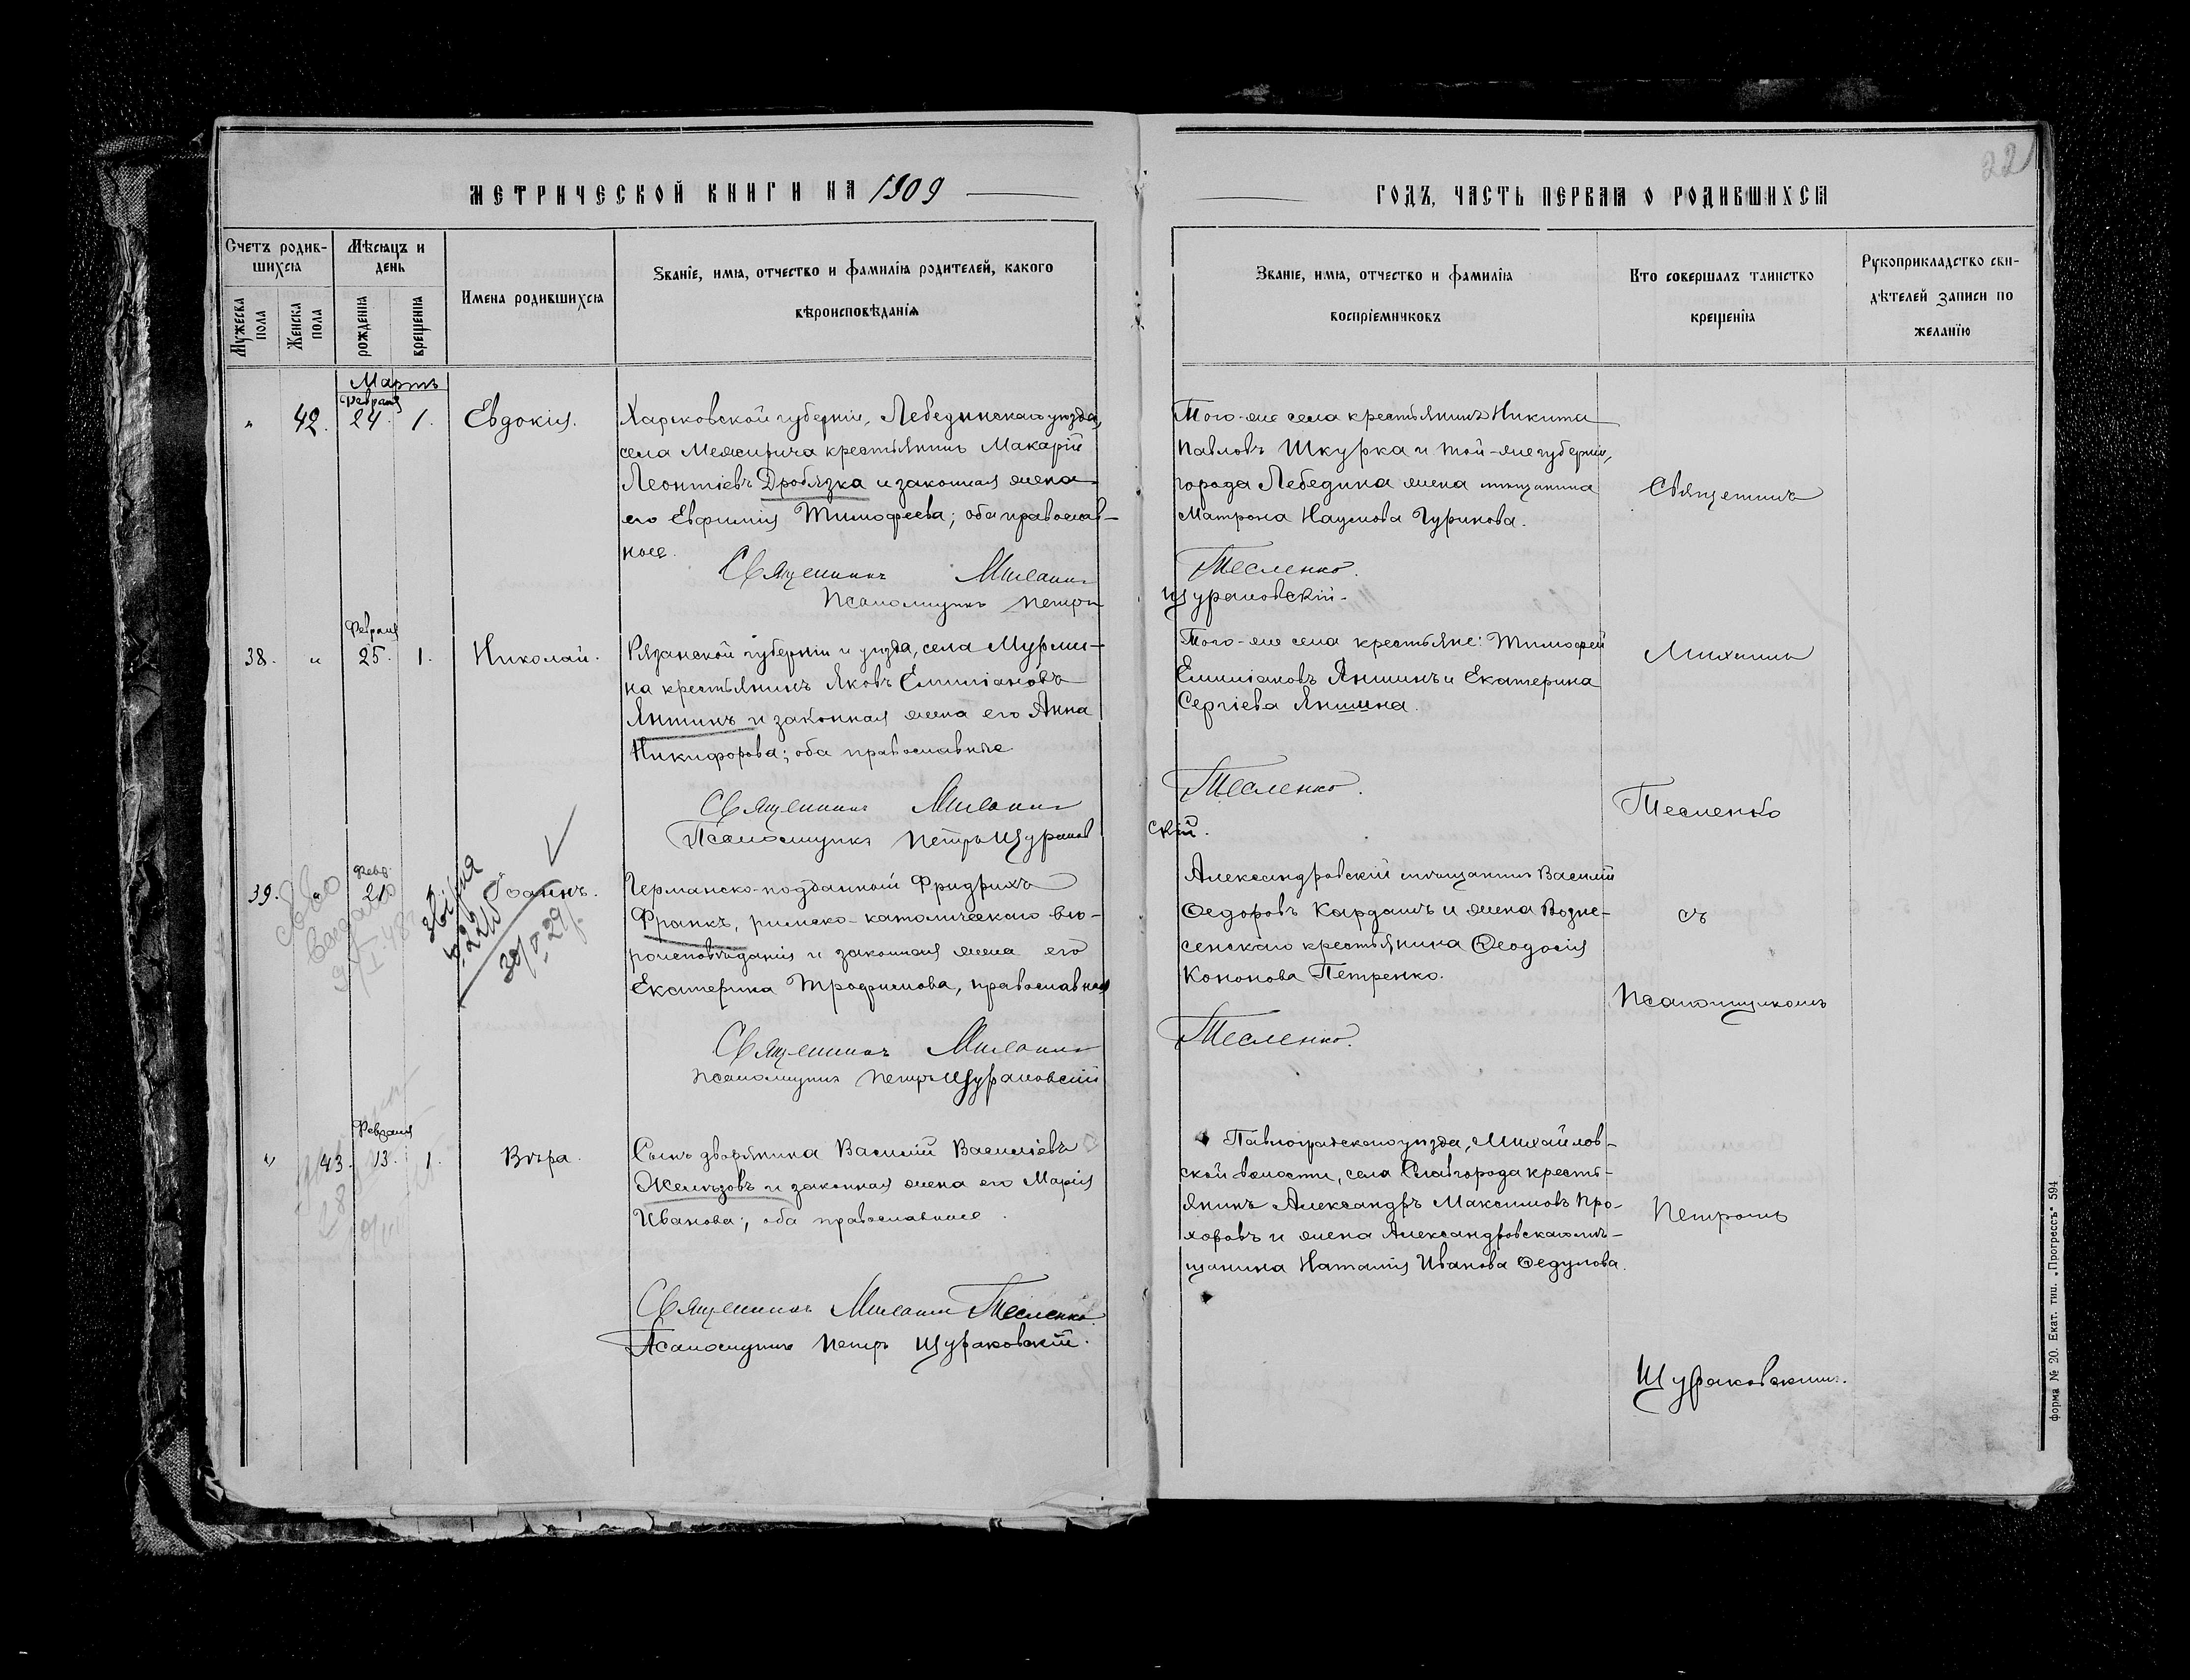 МЕТРИЧЕСКОЙ КНИГИ НА 1909
Счетъ родив-
шихся
Мѣсяцъ и
день
Мужеска
пола
Женска
пола
рожденія
крещенія
Имена родившихся
Званіе, имя, отчество и фамилія родителей, какого
вѣроисповѣданія
Мартъ
Февраля
" 42. 24. 1. Евдокія.
Харьковской губерніи, Лебединскаго уѣзда,
села Межирича крестьянинъ Макарій
Леонтіевъ Дробязка и законная жена
его Евфимія Тимофеева; оба православ-
ные.
Священникъ Михаилъ
Псаломщикъ Петръ
Февраля
38. " 25. 1. Николай.
Рязанской губерніи и уѣзда, села Мурми-
на крестьянинъ Яковъ Емиліановъ
Яншинъ и законная жена его Анна
Никифорова; оба православные
Священникъ Михаилъ
Псаломщикъ Петръ Щураков
Февр.
39. Іоаннъ.
30/V.29 г.
Германско-подданный Фридрихъ
Франкъ, римско-католическаго вѣ-
роисповѣданія и законная жена его
Екатерина Трофимова, православная
Священникъ Михаилъ
Псаломщикъ Петръ Щураковскій
Февраля
" 43. 13. 1. Вѣра.
Сынъ дворянина Василій Васильевъ
Желѣзовъ и законная жена его Марія
Иванова; оба православные.
Священникъ Михаилъ Тесленко.
Псаломщикъ Петръ Щураковскій.
22
ГОДЪ, ЧАСТЬ ПЕРВАЯ О РОДИВШИХСЯ
Званіе, имя, отчество и фамилія
воспріемниковъ
Кто совершалъ таинство
крещенія
Рукоприкладство сви-
дѣтелей записи по
желанію
Того-же села крестьянинъ Никита
Павловъ Шкурка и той-же губерніи,
города Лебедина жена мѣщанина
Матрона Наумова Гуринова.
Тесленко.
Щураковскій.
Того-же села крестьяне: Тимофей
Емиліановъ Яншинъ и Екатерина
Сергіева Яншина.
Тесленко.
скій.
Александровскій мѣщанинъ Василій
Ѳедоровъ Кардашъ и жена Возне-
сенскаго крестьянина Ѳеодосія
Кононова Петренко.
Тесленко.
Павлоградскаго уѣзда, Михайлов-
ской волости, села Славгорода кресть-
янинъ Александръ Максимовъ Про-
хоровъ и жена Александровскаго мѣ-
щанина Наталія Иванова Ѳедулова.
Священникъ
Михаилъ
Тесленко
съ
Псаломщикомъ
Петромъ
Щураковскимъ.
Форма № 20. Екат. тип. „Прогрессъ" 594